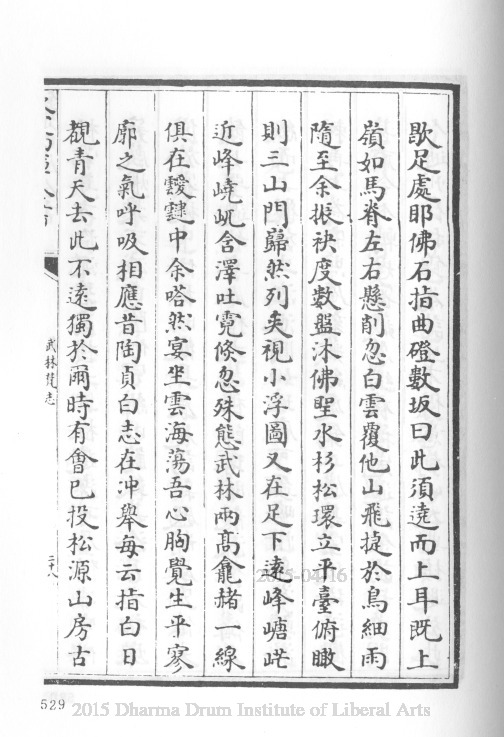 歇足處耶佛石指曲磴數坂曰此須遶而上耳既上
嶺如馬脊左右懸削忽白雲覆他山飛捷於鳥細雨
隨至余振袂度數盤沐佛聖水杉松環立平臺俯瞰
則三山門巋然列矣視小浮圖又在足下遠峰嶉岯
近峰嶢屼含澤吐霓倏忽殊態武林兩高龕赭一線
俱在靉靆中余嗒然宴坐雲海蕩吾心胸覺生平寥
廓之氣呼吸相應昔陶貞白志在冲舉每云指白日
覩青天去此不遠獨於爾時有會已投松源山房古
武林梵志
二十八
529
2015-04/16
2015 Dharma Drum Institute of Liberal Arts